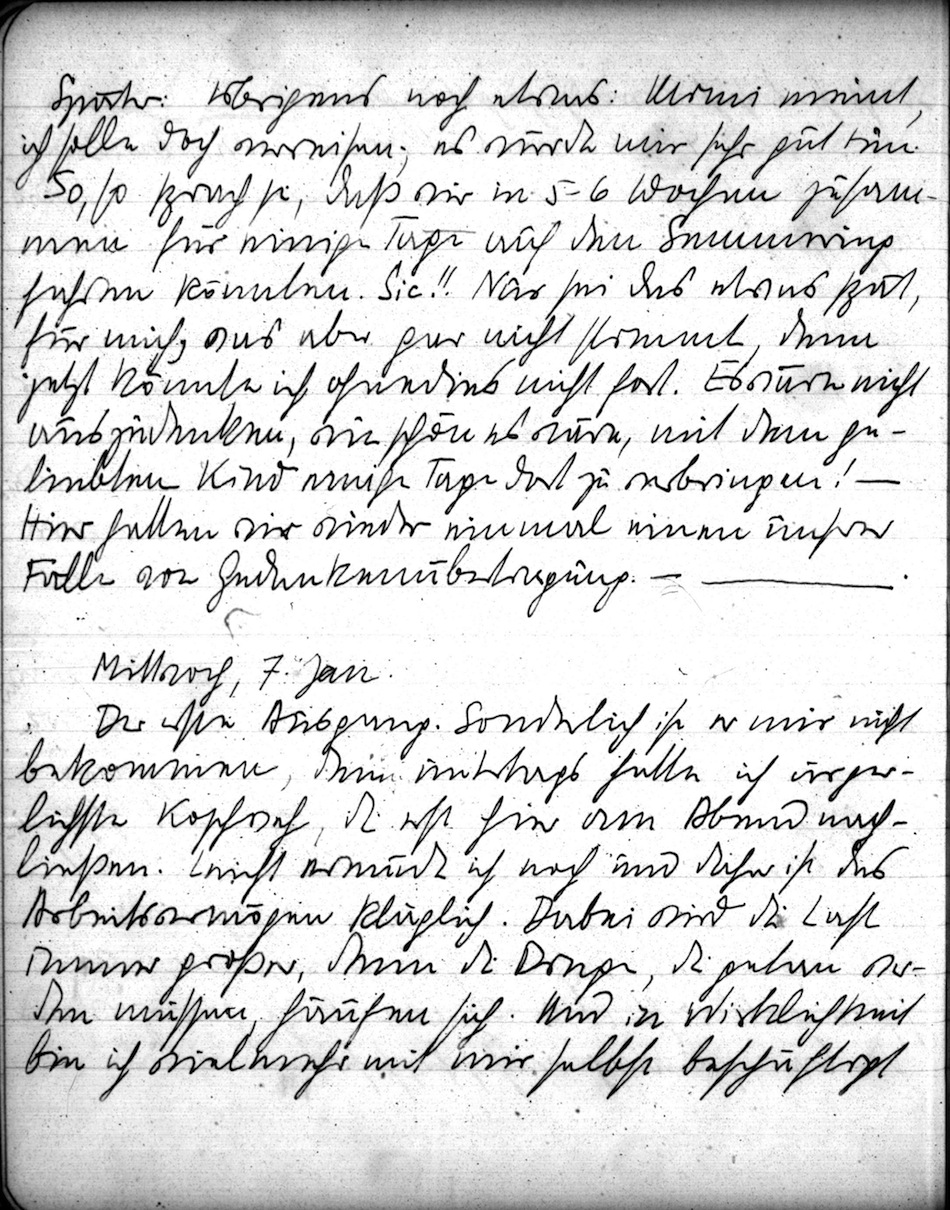 Später: Übrigens noch etwas: Mimi meint,
ich solle doch verreisen, es würde mir sehr gut tun.
So, so sprach sie, daß wir in 5-6 Wochen zusam-
men für einige Tage auf den Semmering
fahren könnten. Sic!! Nur sei das etwas spät,
für mich, was aber gar nicht stimmt, denn
jetzt könnte ich ohnedies nicht fort. Es wäre nicht
auszudenken, wie schön es wäre, mit dem ge-
liebten Kind einige Tage dort zu verbringen! —
Hier hatten wir wieder einmal einen unsrer
Fälle von Gedankenübertragung. — —.
Mittwoch, 7. Jan.
Der erste Ausgang. Sonderlich ist er mir nicht
bekommen, denn untertags hatte ich ärger-
lichste Kopfweh, die erst hier am Abend nach-
ließen. Leicht ermüde ich noch und daher ist das
Arbeitsvermögen kläglich. Dabei wird die Last
immer größer, denn die Dinge, die getan wer-
den müssen, häufen sich. Und in Wirklichkeit
bin ich vielmehr mit mir selbst beschäftigt